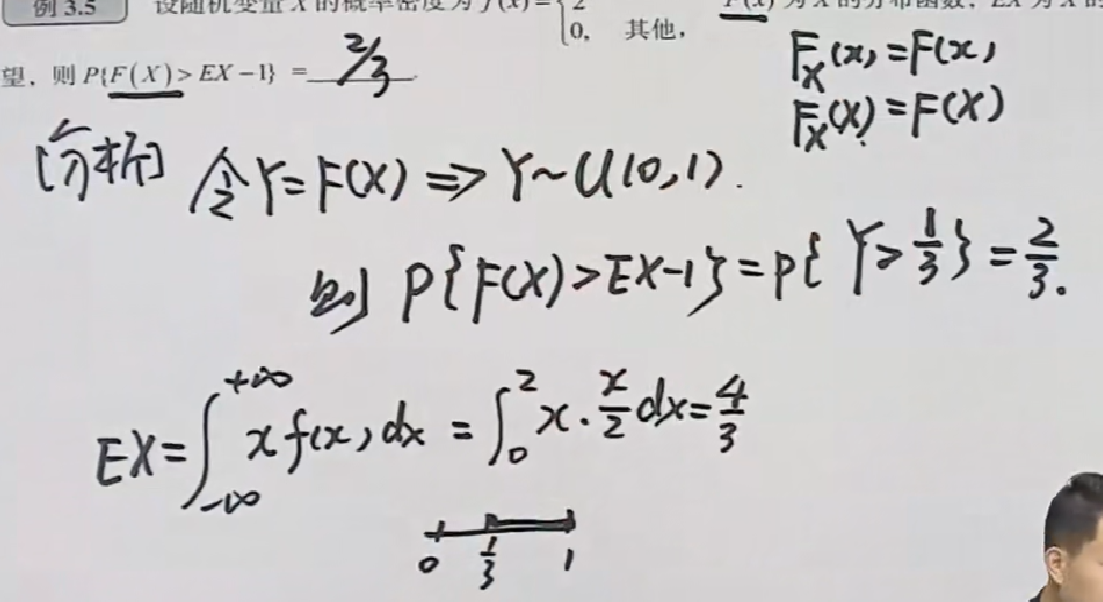 例 3.5 设随机变量 X 的概率密度为 f(x)={ 2
0, 其他, F(x) 为 X 的分布函数, EX 为 X 的
望,则 P{F(X)>EX-1} = 2/3
F_X(x)=F(x)
F_X(X)=F(X)
[分析] 令Y=F(X) ⇒ Y~U(0,1).
则 P{F(X)>EX-1}=P{Y>1/3}=2/3.
EX=∫_{-∞}^{+∞} x f(x)dx = ∫_0^2 x·x/2 dx=4/3
0 1/3 1